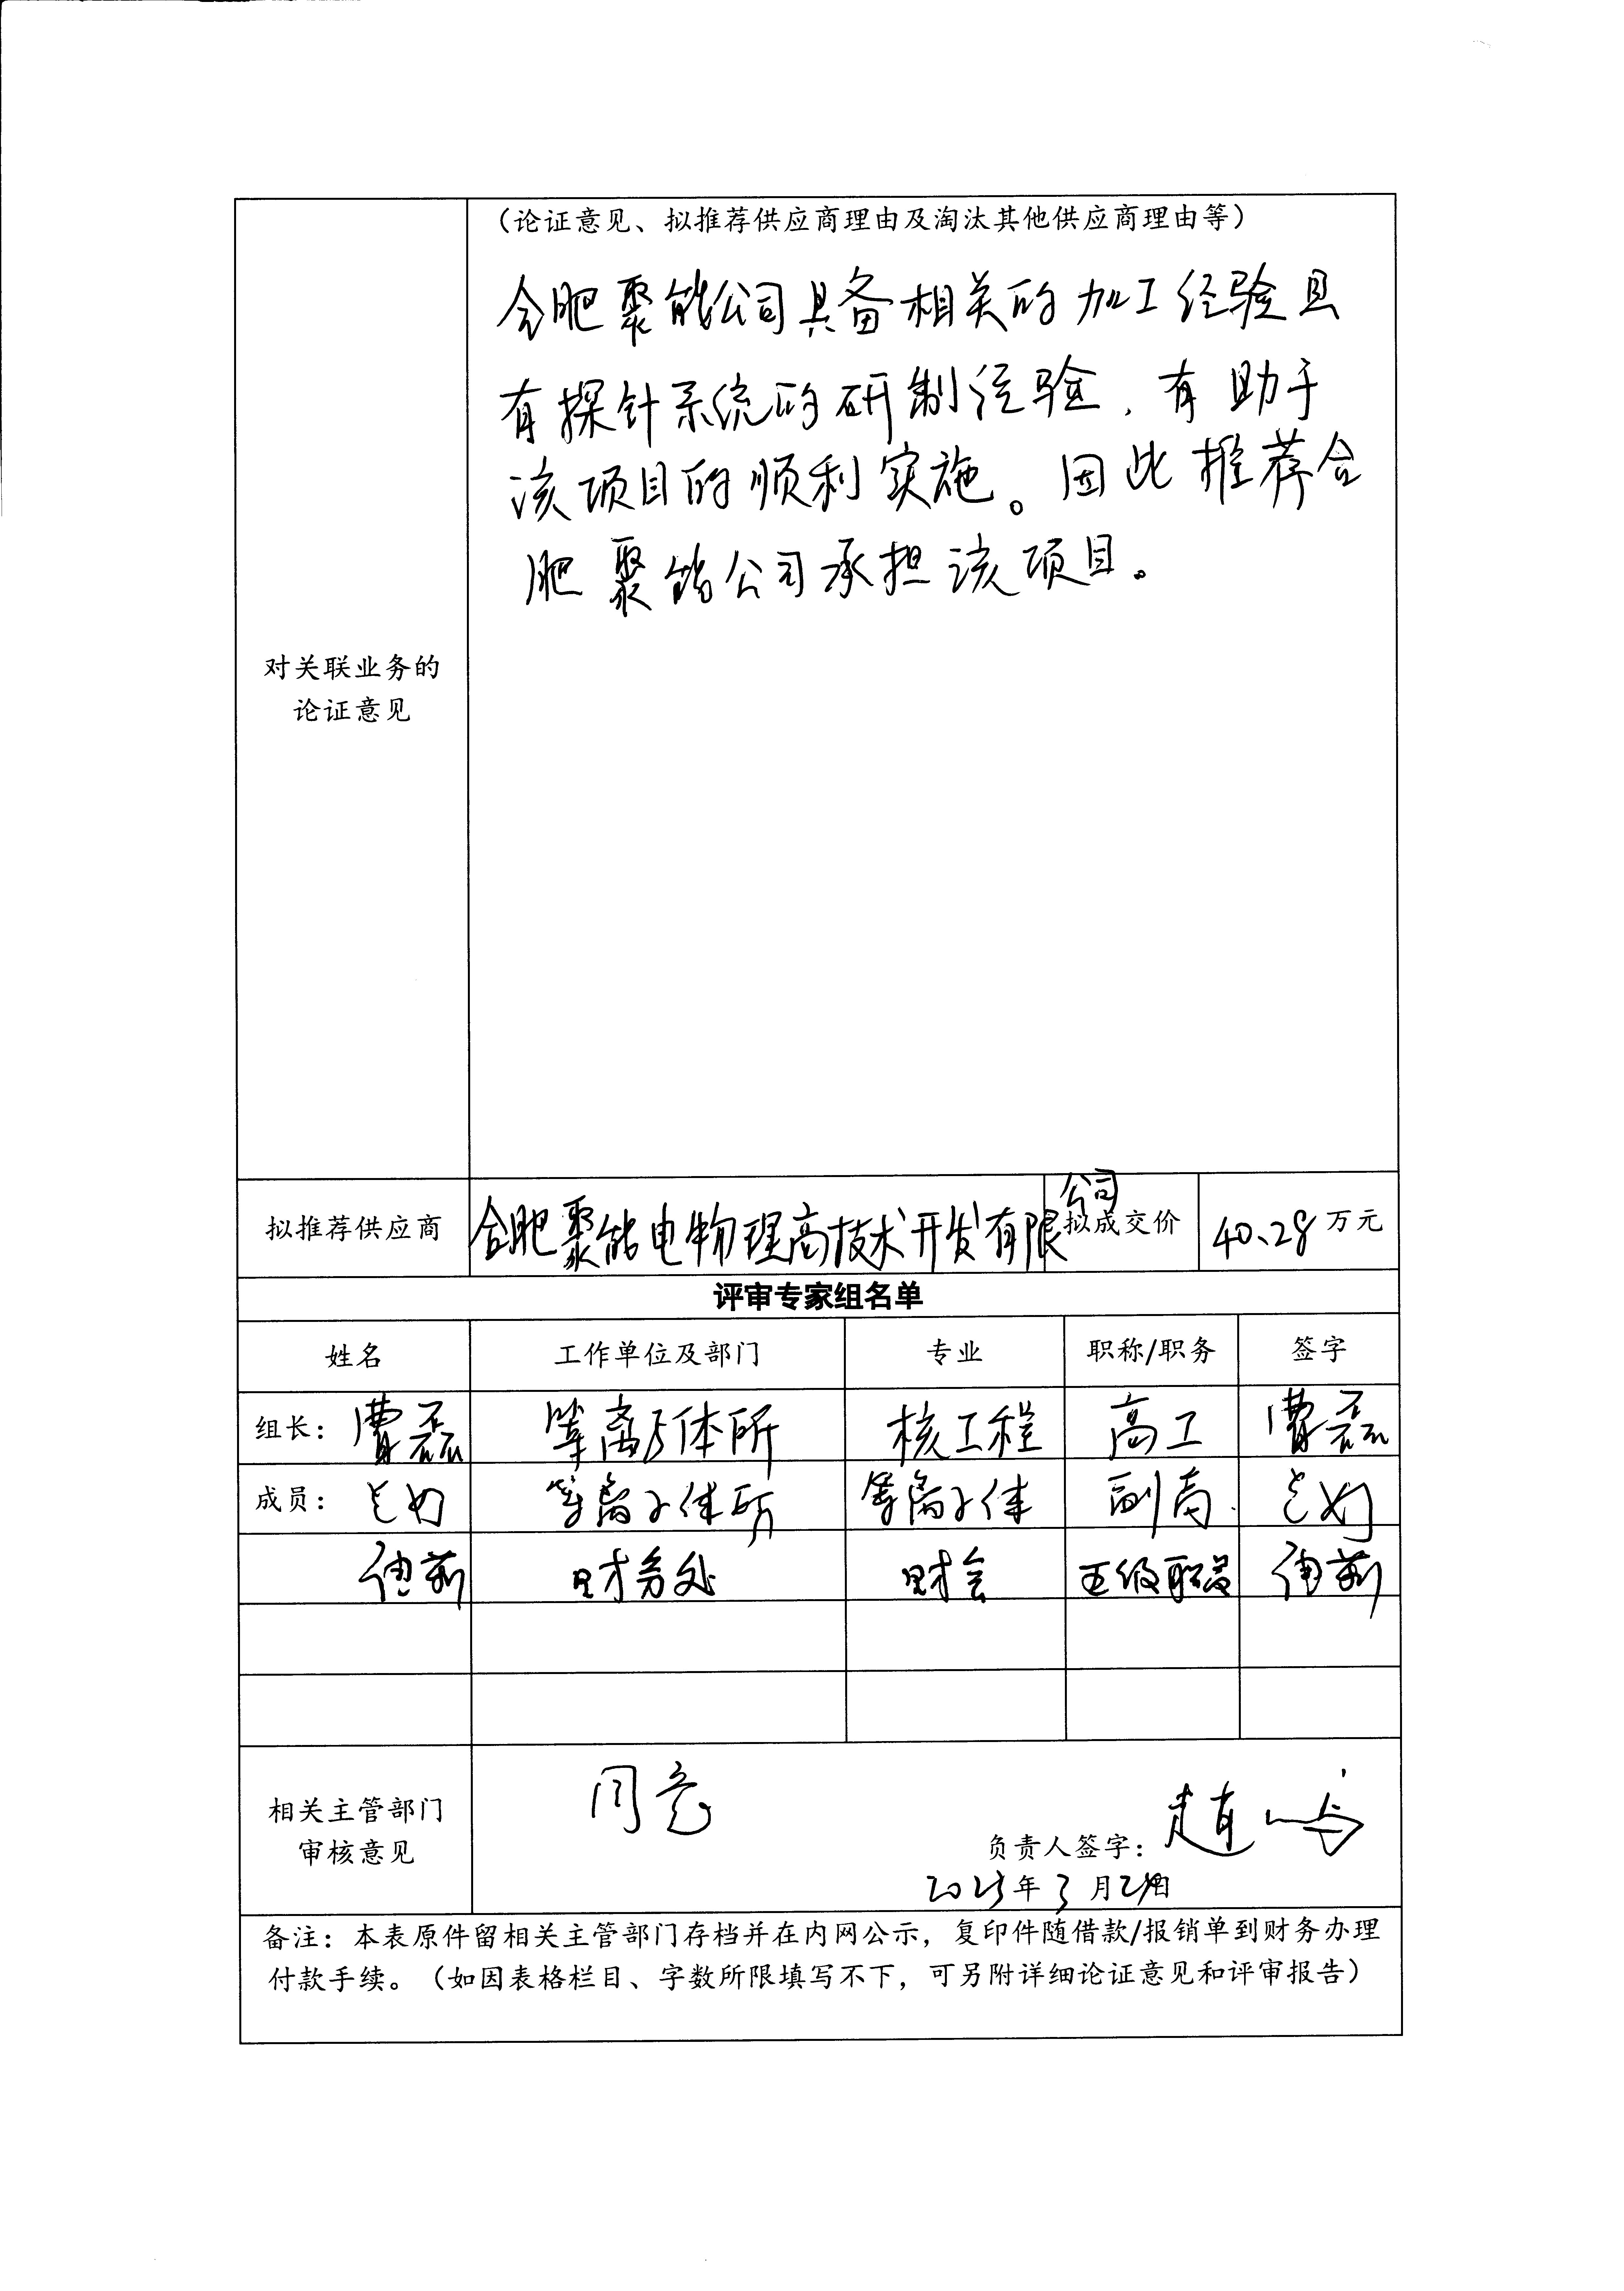 （论证意见、拟推荐供应商理由及淘汰其他供应商理由等）
合肥聚能公司具备相关的加工经验且
有探针系统的研制经验，有助于
该项目的顺利实施。因此推荐合
肥聚能公司承担该项目。
对关联业务的
论证意见
公司
拟推荐供应商 合肥聚能电物理高技术开发有限 拟成交价 40.28 万元
评审专家组名单
姓名 工作单位及部门 专业 职称/职务 签字
组长：曹磊 等离子体所 核工程 高工 曹磊
成员： 等离子体所 等离子体 副高
财务处 财会 五级职员
相关主管部门
审核意见
同意
负责人签字：赵
2025年3月 日
备注：本表原件留相关主管部门存档并在内网公示，复印件随借款/报销单到财务办理
付款手续。（如因表格栏目、字数所限填写不下，可另附详细论证意见和评审报告）